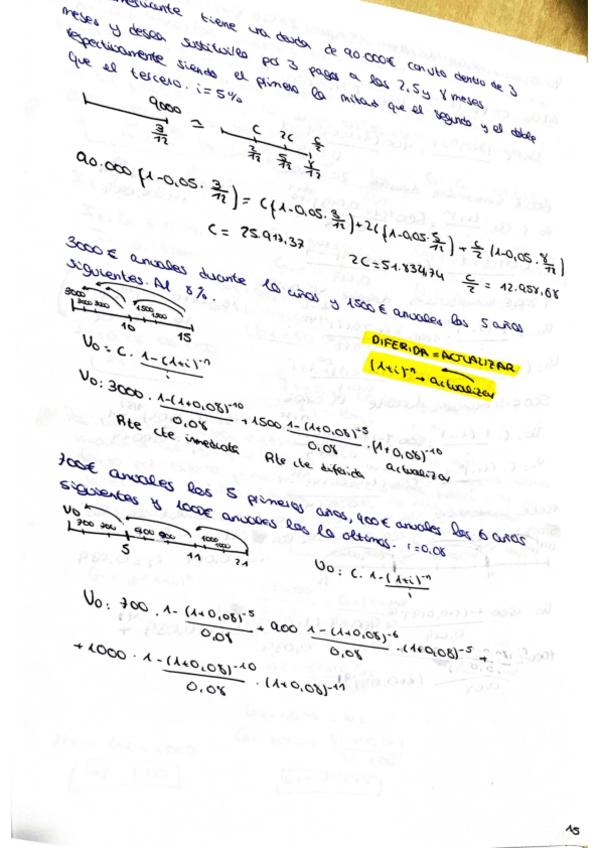 tiene una deuda de 90.000€ con vto dentro de 3
meses y desea sustituirlo por 3 pagos a los 2, 5 y 8 meses
respectivamente siendo el primero la mitad que el segundo y el doble
que el tercero. i=5%
9000 ≃ C 2C C/2
3/12 2/12 5/12 8/12
90.000 (1-0,05 · 3/12) = C(1-0,05 · 2/12) + 2C(1-0,05 · 5/12) + C/2 (1-0,05 · 8/12)
C = 25.917,37 2C = 51.834,74 C/2 = 12.958,68
3000€ anuales durante 10 años y 1500€ anuales los 5 años
siguientes. Al 8%.
3000 3000 3000 1500 1500
10 15
DIFERIDA = ACTUALIZAR
(1+i)⁻ⁿ → actualizar
V₀ = C · 1-(1+i)⁻ⁿ / i
V₀: 3000 · 1-(1+0,08)⁻¹⁰ / 0,08 + 1500 1-(1+0,08)⁻⁵ / 0,08 · (1+0,08)⁻¹⁰
Rte cte inmediata Rte cte diferida actualizar
700€ anuales los 5 primeros años, 900€ anuales los 6 años
siguientes y 1000€ anuales los 10 últimos. i=0,08
V₀ 700 700 900 900 1000 1000
5 11 21
V₀: C · 1-(1+i)⁻ⁿ / i
V₀: 700 · 1-(1+0,08)⁻⁵ / 0,08 + 900 1-(1+0,08)⁻⁶ / 0,08 · (1+0,08)⁻⁵ +
+ 1000 · 1-(1+0,08)⁻¹⁰ / 0,08 · (1+0,08)⁻¹¹
15